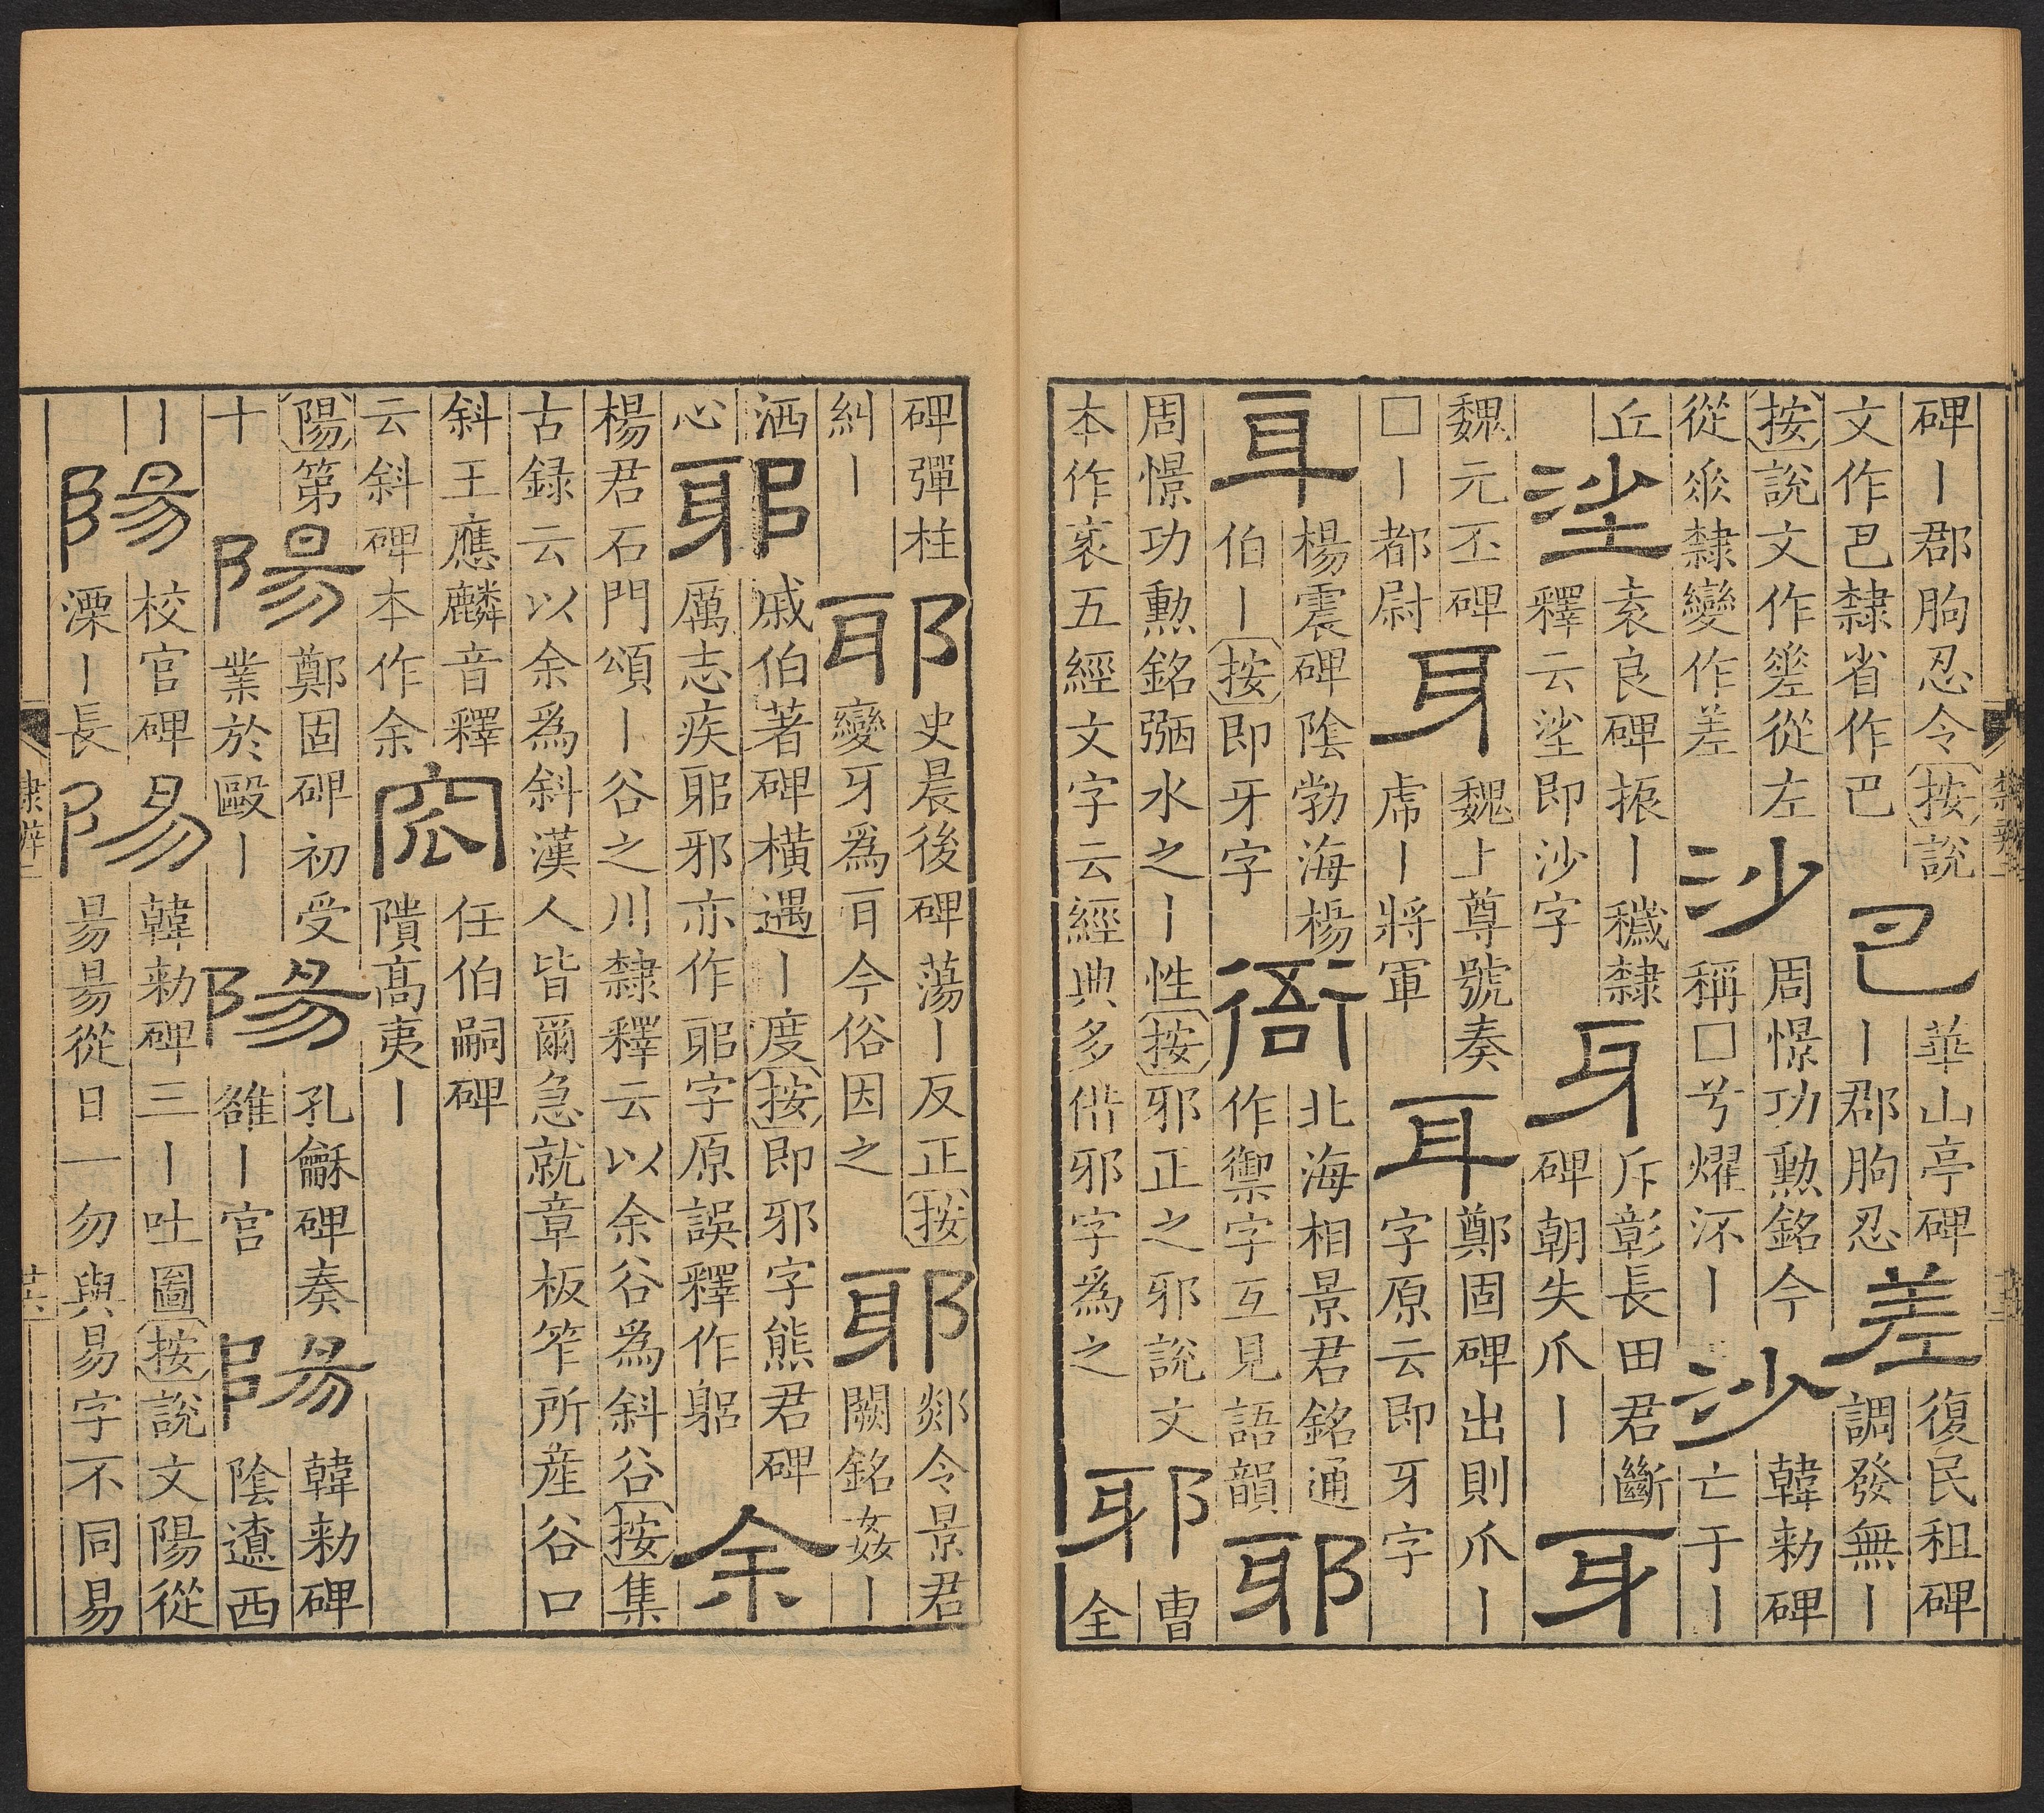 碑丨郡朐忍令按說
文作巴隸省作巴
巴
華山亭碑
丨郡朐忍
差
復民租碑
調發無丨
按說文作𢀩從左
從𠂹隸變作差
沙
周憬功勳銘今
稱□兮燿沠丨
沙
韓勑碑
亡于丨
丘
袁良碑振丨穢隸
釋云即沙字
牙
斥彰長田君斷
碑朝失爪丨
牙
魏元丕碑
□丨都尉
牙
魏上尊號奏
虎丨將軍
耳
鄭固碑出則爪丨
字原云即牙字
耳
楊震碑陰勃海楊
伯丨按即牙字
衙
北海相景君銘通
作禦字互見語韻
耶
周憬功勳銘弱水之丨性按邪正之邪說文
本作衺五經文字云經典多借邪字爲之
耶
曹
仝
碑彈枉
糾丨
耶
史晨後碑蕩丨反正按
變牙爲耳今俗因之
耶
郯令景君
闕銘姦丨
洒
心
耶
戚伯著碑橫遇丨度按即邪字熊君碑
厲志疾耶邪亦作耶字原誤釋作躬
余
楊君石門頌丨谷之川隸釋云以余谷爲斜谷按集
古録云以余爲斜漢人皆爾急就章板笮所産谷口
斜王應麟音釋
云斜碑本作余
窊
任伯嗣碑
隤高夷丨
陽第
十
陽
鄭固碑初受
業於歐丨
陽
孔龢碑奏
雒丨宮
陽
韓勑碑
陰遼西
丨
陽
校官碑
溧丨長
陽
韓勑碑三丨吐圖按說文陽從
昜昜從日一勿與易字不同易